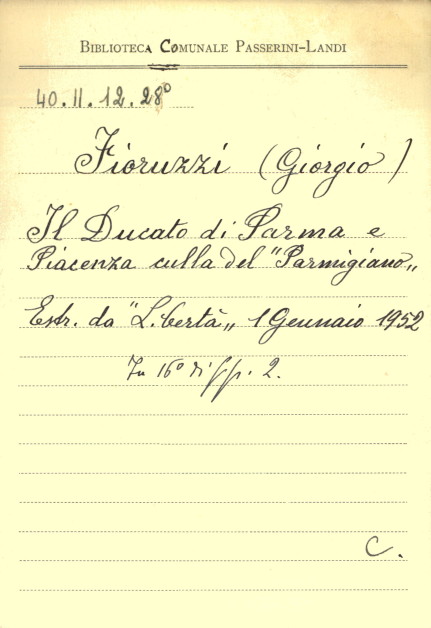 BIBLIOTECA COMUNALE PASSERINI-LANDI
40.II.12.28°
Fioruzzi (Giorgio)
Il Ducato di Parma e
Piacenza culla del "Parmigiano„
Estr. da "Libertà„ 1 Gennaio 1952
In 16° di pp. 2.
C.